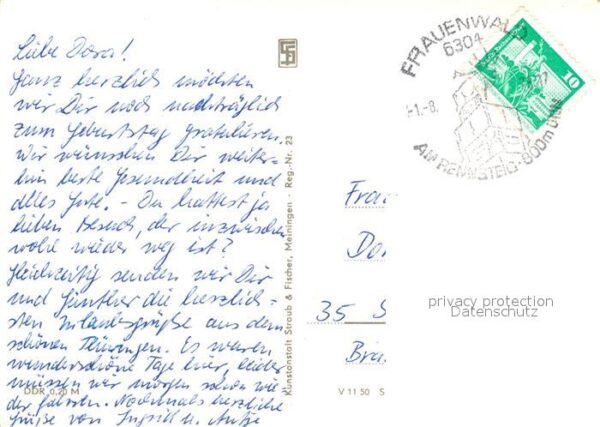 Liebe Dora!
Ganz herzlich möchten
wir Dir noch nachträglich
zum Geburtstag gratulieren.
Wir wünschen Dir weiter-
hin beste Gesundheit und
alles Gute. - Du hattest ja
lieben Besuch, der inzwischen
wohl wieder weg ist?
Gleichzeitig senden wir Dir
und Günther die herzlich-
sten Urlaubsgrüße aus dem
schönen Thüringen. Es waren
wunderschöne Tage hier, leider
müssen wir morgen schon wie-
der fahren. Nochmals herzliche
Grüße von Ingrid u. Antje
DDR 0,20 M
Kunstanstalt Straub & Fischer, Meiningen - Reg.-Nr. 23
V 11 50 S
FRAUENWALD
6304
-1.-8.
AM RENNSTEIG · 800m ÜNN
10
Frau
Do
35 S
Bra
privacy protection
Datenschutz